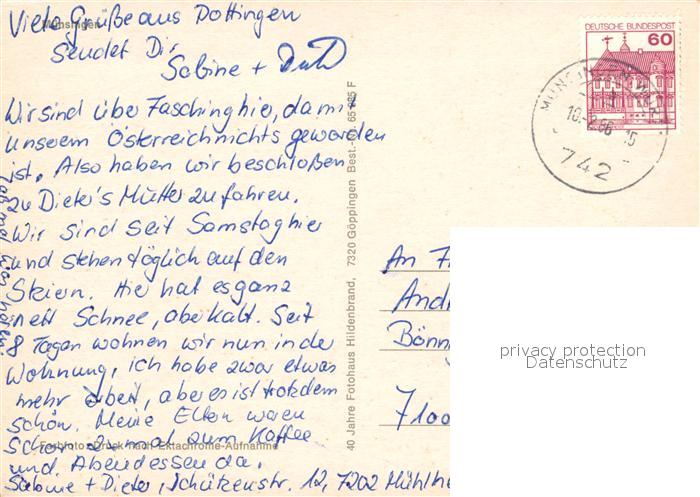 Viele Grüße aus Dottingen
Münsingen
sendet Dir
Sabine +
Wir sind über Fasching hier, da mit
unserem Österreich nichts geworden
ist. Also haben wir beschloßen
zu Dieter's Mutter zu fahren.
Wir sind seit Samstag hier
und stehen täglich auf den
Skiern. Hie hat es ganz
nett Schnee, aber kalt. Seit
8 Tagen wohnen wir nun in de
Wohnung, ich habe zwar etwas
mehr Arbeit, aber es ist trotzdem
schön. Meine Eltern waren
schon 2 mal zum Kaffee
Farbfoto - Druck nach Ektachrome-Aufnahme
und Abendessen da.
Sabine + Dieter, Schützenstr. 12, 7202 Mühlhe
40 Jahre Fotohaus Hildenbrand, 7320 Göppingen Best.-
DEUTSCHE BUNDESPOST
60
MÜNSINGEN
10.-2.86-15
742
An
Andr
Bönn
7100
privacy protection
Datenschutz